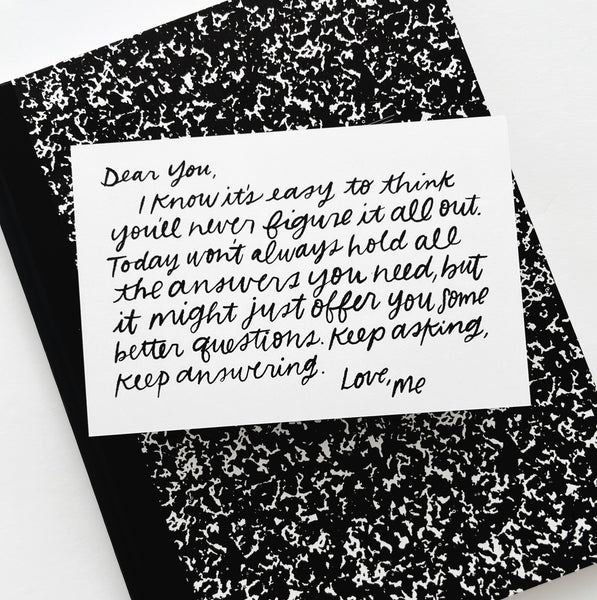 Dear You,
I know it's easy to think
you'll never figure it all out.
Today won't always hold all
the answers you need, but
it might just offer you some
better questions. Keep asking,
keep answering.
Love, Me